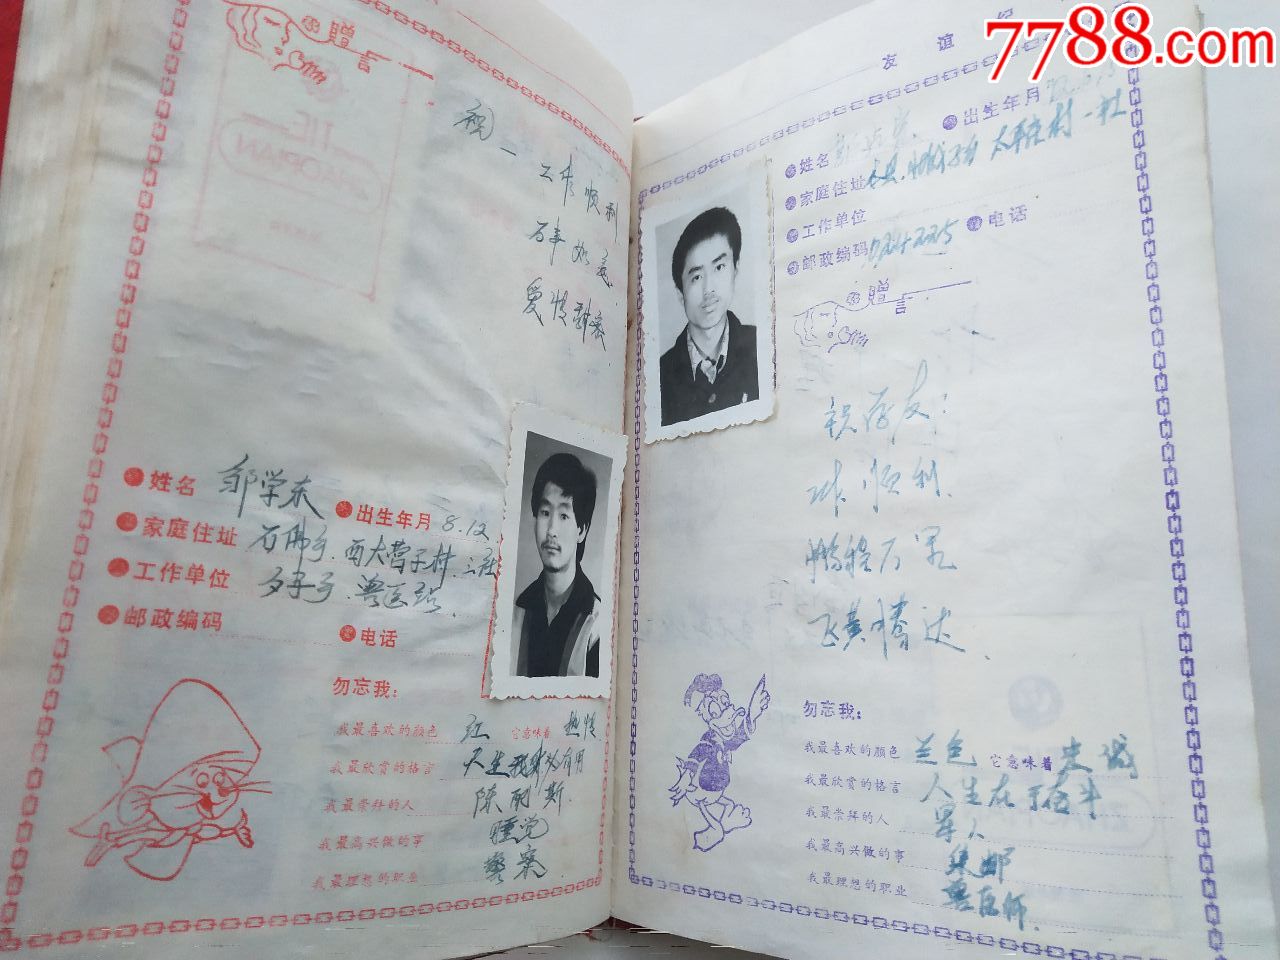 赠言
祝
工作顺利
万事如意
爱情甜蜜
姓名 邹学东 出生年月 8.12
家庭住址 石佛乡.西大营子村.三社
工作单位 兽医站.
邮政编码 电话
勿忘我:
我最喜欢的颜色 红 它意味着 热情
我最欣赏的格言 天生我才必有用
我最崇拜的人 陈丽斯.
我最高兴做的事 睡觉
我最理想的职业 警察
7788.com
友谊
出生年月
姓名
家庭住址 太平庄村一社
工作单位
邮政编码 电话
赠言
祝 友:
工作顺利.
鹏程万里
飞黄腾达.
勿忘我:
我最喜欢的颜色 兰色 它意味着 忠诚
我最欣赏的格言 人生在于奋斗
我最崇拜的人 军人
我最高兴做的事 集邮
我最理想的职业 兽医师.